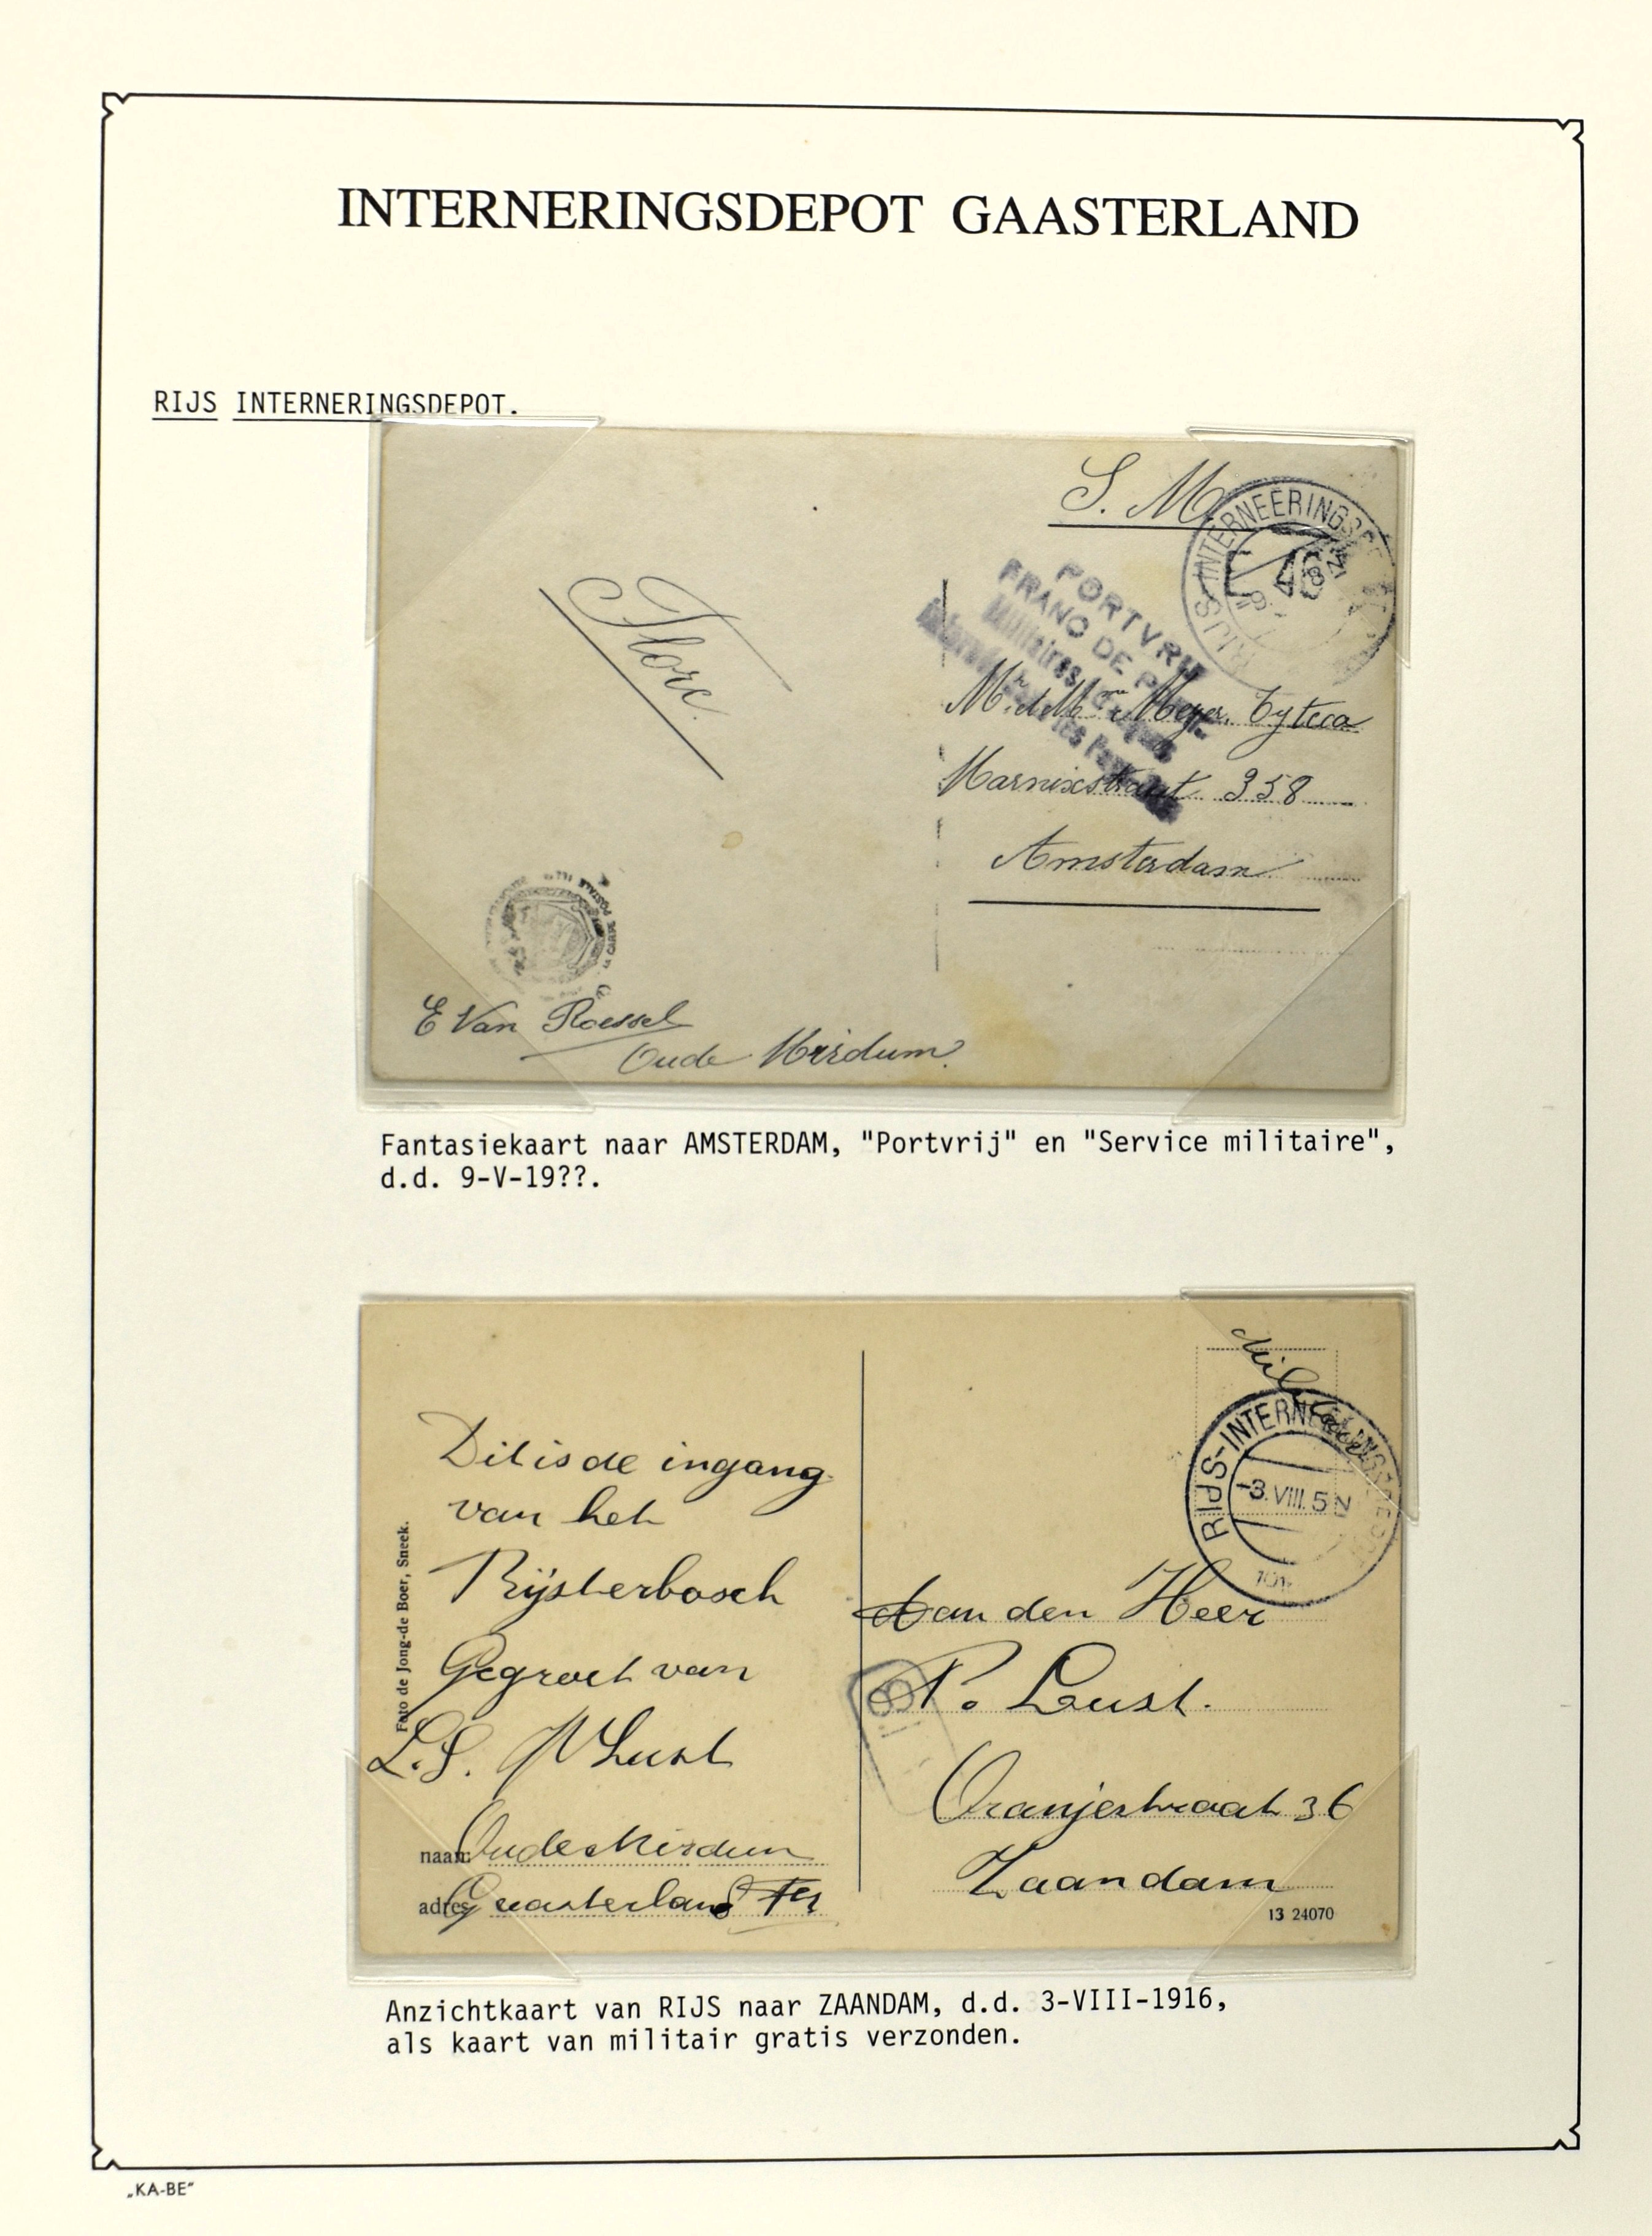 INTERNERINGSDEPOT GAASTERLAND
RIJS INTERNERINGSDEPOT.
S. M.
RIJS-INTERNEERINGSDE
46
PORTVRIJ
FRANC DE P
Militaires
Mr. et Mme Meyer.
Marnixstraat 358
Amsterdam
E Van Roessel
Oude Mirdum.
Fantasiekaart naar AMSTERDAM, "Portvrij" en "Service militaire",
d.d. 9-V-19??.
RIJS-INTERNEERINGSDEPOT
-3.VIII.5 N
Dit is de ingang
van het
Rijsterbosch
Gegroet van
L.S. Lust
naam: Oude Mirdum
adres: Gaasterland
Foto de Jong-de Boer, Sneek.
Aan den Heer
P. Lust.
Oranjestraat 36
Zaandam
13 24070
Anzichtkaart van RIJS naar ZAANDAM, d.d. 3-VIII-1916,
als kaart van militair gratis verzonden.
„KA-BE"